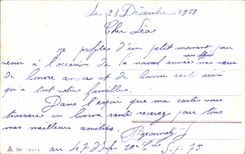 Le 28 Décembre 1918
Cher Léa
Je profites d'un petit moment pour
venir à l'occasion de la nouvel année mes vœux
de bonne année et de bonne santé ainsi
qu'à tout votre famille.
Dans l'espoir que ma carte vous
trouvera en bonne santé recevez pour tous
mes meilleurs amitiés
au 47 10e S.P. 75